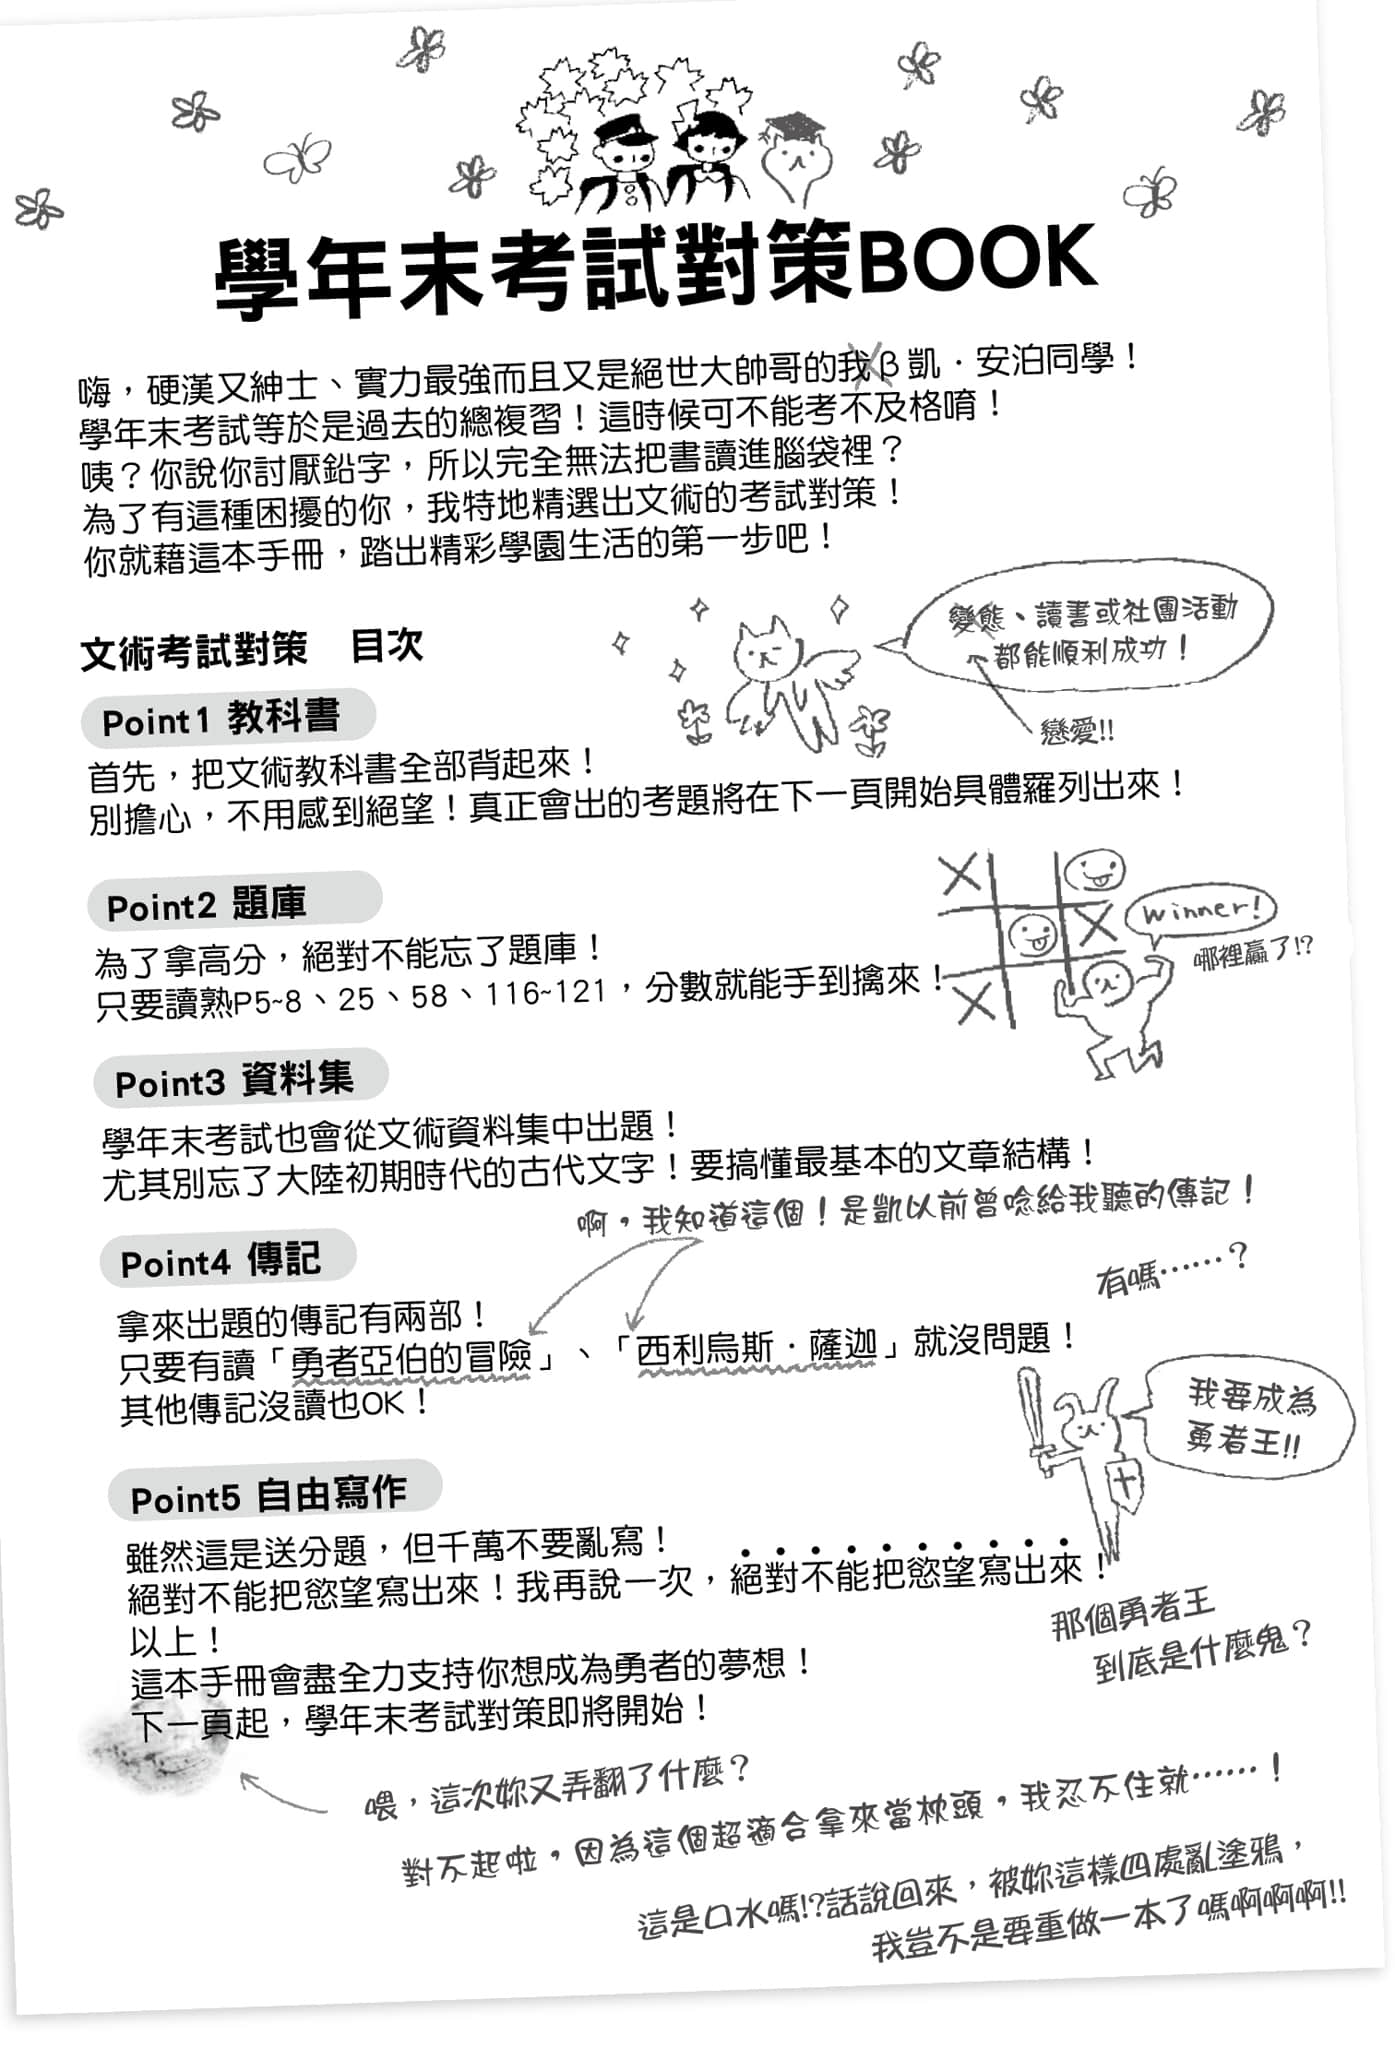 學年末考試對策BOOK
嗨，硬漢又紳士、實力最強而且又是絕世大帥哥的我β凱．安泊同學！
學年末考試等於是過去的總複習！這時候可不能考不及格唷！
咦？你說你討厭鉛字，所以完全無法把書讀進腦袋裡？
為了有這種困擾的你，我特地精選出文術的考試對策！
你就藉這本手冊，踏出精彩學園生活的第一步吧！
變態、讀書或社團活動
都能順利成功！
戀愛!!
文術考試對策　目次
Point1 教科書
首先，把文術教科書全部背起來！
別擔心，不用感到絕望！真正會出的考題將在下一頁開始具體羅列出來！
Point2 題庫
為了拿高分，絕對不能忘了題庫！
只要讀熟P5~8、25、58、116~121，分數就能手到擒來！
winner!
哪裡贏了!?
Point3 資料集
學年末考試也會從文術資料集中出題！
尤其別忘了大陸初期時代的古代文字！要搞懂最基本的文章結構！
啊，我知道這個！是凱以前曾唸給我聽的傳記！
有嗎……？
Point4 傳記
拿來出題的傳記有兩部！
只要有讀「勇者亞伯的冒險」、「西利烏斯．薩迦」就沒問題！
其他傳記沒讀也OK！
我要成為
勇者王!!
Point5 自由寫作
雖然這是送分題，但千萬不要亂寫！
絕對不能把慾望寫出來！我再說一次，絕對不能把慾望寫出來！
以上！
這本手冊會盡全力支持你想成為勇者的夢想！
下一頁起，學年末考試對策即將開始！
那個勇者王
到底是什麼鬼？
喂，這次妳又弄翻了什麼？
對不起啦，因為這個超適合拿來當枕頭，我忍不住就……！
這是口水嗎!?話說回來，被妳這樣四處亂塗鴉，
我豈不是要重做一本了嗎啊啊啊!!